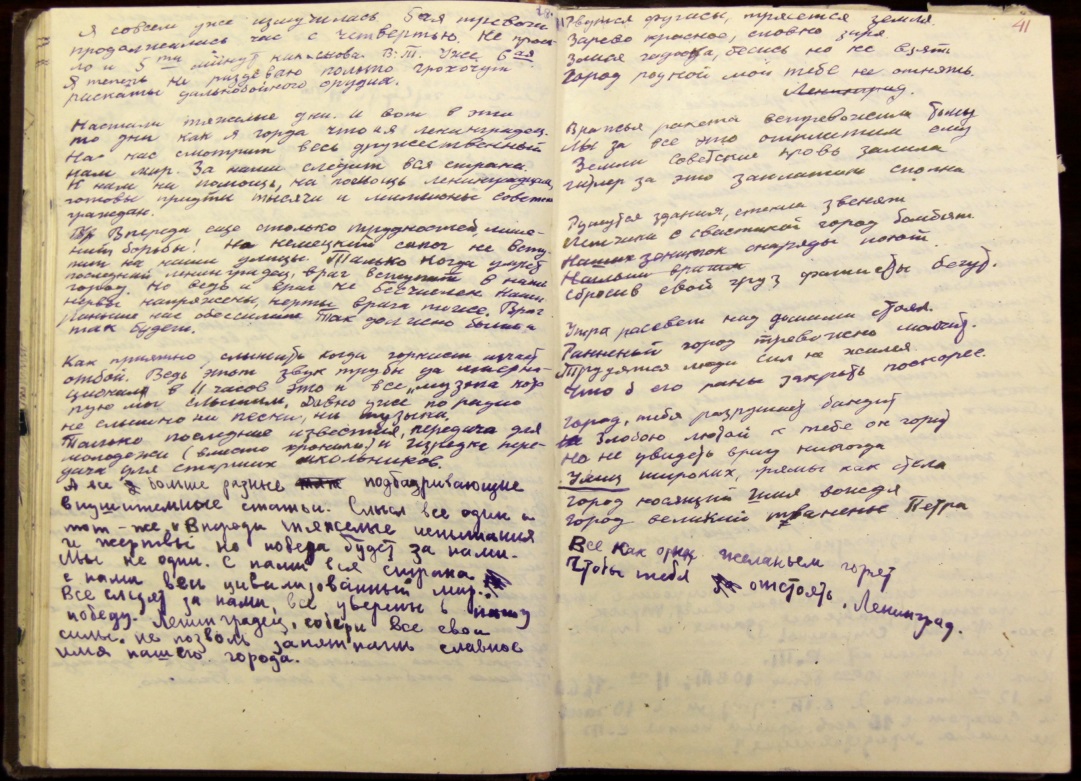 Я совсем уже измучилась. 5ая тревога
продолжалась час с четвертью. Не прош-
ло и 5ти минут как снова В.Т. Уже 6ая
Я теперь не раздеваю только грохочут
раскаты дальнобойного орудия.
Настали тяжелые дни. И вот в эти
то дни как я горда что я ленинградец.
На нас смотрит весь дружественный
нам мир. За нами следит вся страна.
К нам на помощь, на помощь ленинградцам
готовы придти тысячи и миллионы советск
граждан.
Впереди еще столько трудностей, лише-
ний, борьбы! Но немецкий сапог не всту-
пит на наши улицы. Только когда умрет
последний ленинградец, враг вступит в наш
город. Но ведь и враг не бесчислен. Наши
нервы напряжены, нервы врага тоже. Враг
раньше нас обессилит. Так должно быть и
так будет.
Как приятно слышать когда горнист играет
отбой. Ведь этот звук трубы да интерна-
ционал в 11 часов это и все, музыка кото
рую мы слышим. Давно уже по радио
не слышно ни песни, ни музыки.
Только последние известия, передача для
молодежи (вместо хроники) и изредка пере-
дача для старших школьников.
А все больше разные подбадривающие
внушительные статьи. Смысл все один и
тот-же, "Впереди тяжелые испытания
и жертвы но победа будет за нами.
Мы не одни. С нами вся страна
с нами весь цивилизованный мир."
Все следят за нами, все уверены в нашу
победу. Ленинградец, собери все свои
силы. не позволь запятнать славное
имя нашего города.
41
Рвутся фугасы, трясется земля.
Зарево красное, словно заря
Злися гадюка, бесись но не взять
Город родной мой тебе не отнять.
Ленинград.
Вражья ракета встревожила тьму
Мы за все это отплатим ему
Земли советские кровь залила
гитлер за это заплатит сполна
Рушутся здания, стекла звенят
Летчики с свастикой город бомбят
Наших зениток снаряды поют
Сбросив свой груз фашисты бегут.
Утра рассвет над домами стоял.
Раненый город тревожно молчит.
Трудятся люди сил не жалея
Что б его раны закрыть поскорее.
Город, тебя разрушает бандит
Злобою лютой к тебе он горит
Но не увидеть врагу никогда
Улиц широких, прямых как стела
город носящий имя вождя
город великий творенье Петра
Все как один желаньем горят
Чтобы тебя отстоять, Ленинград.